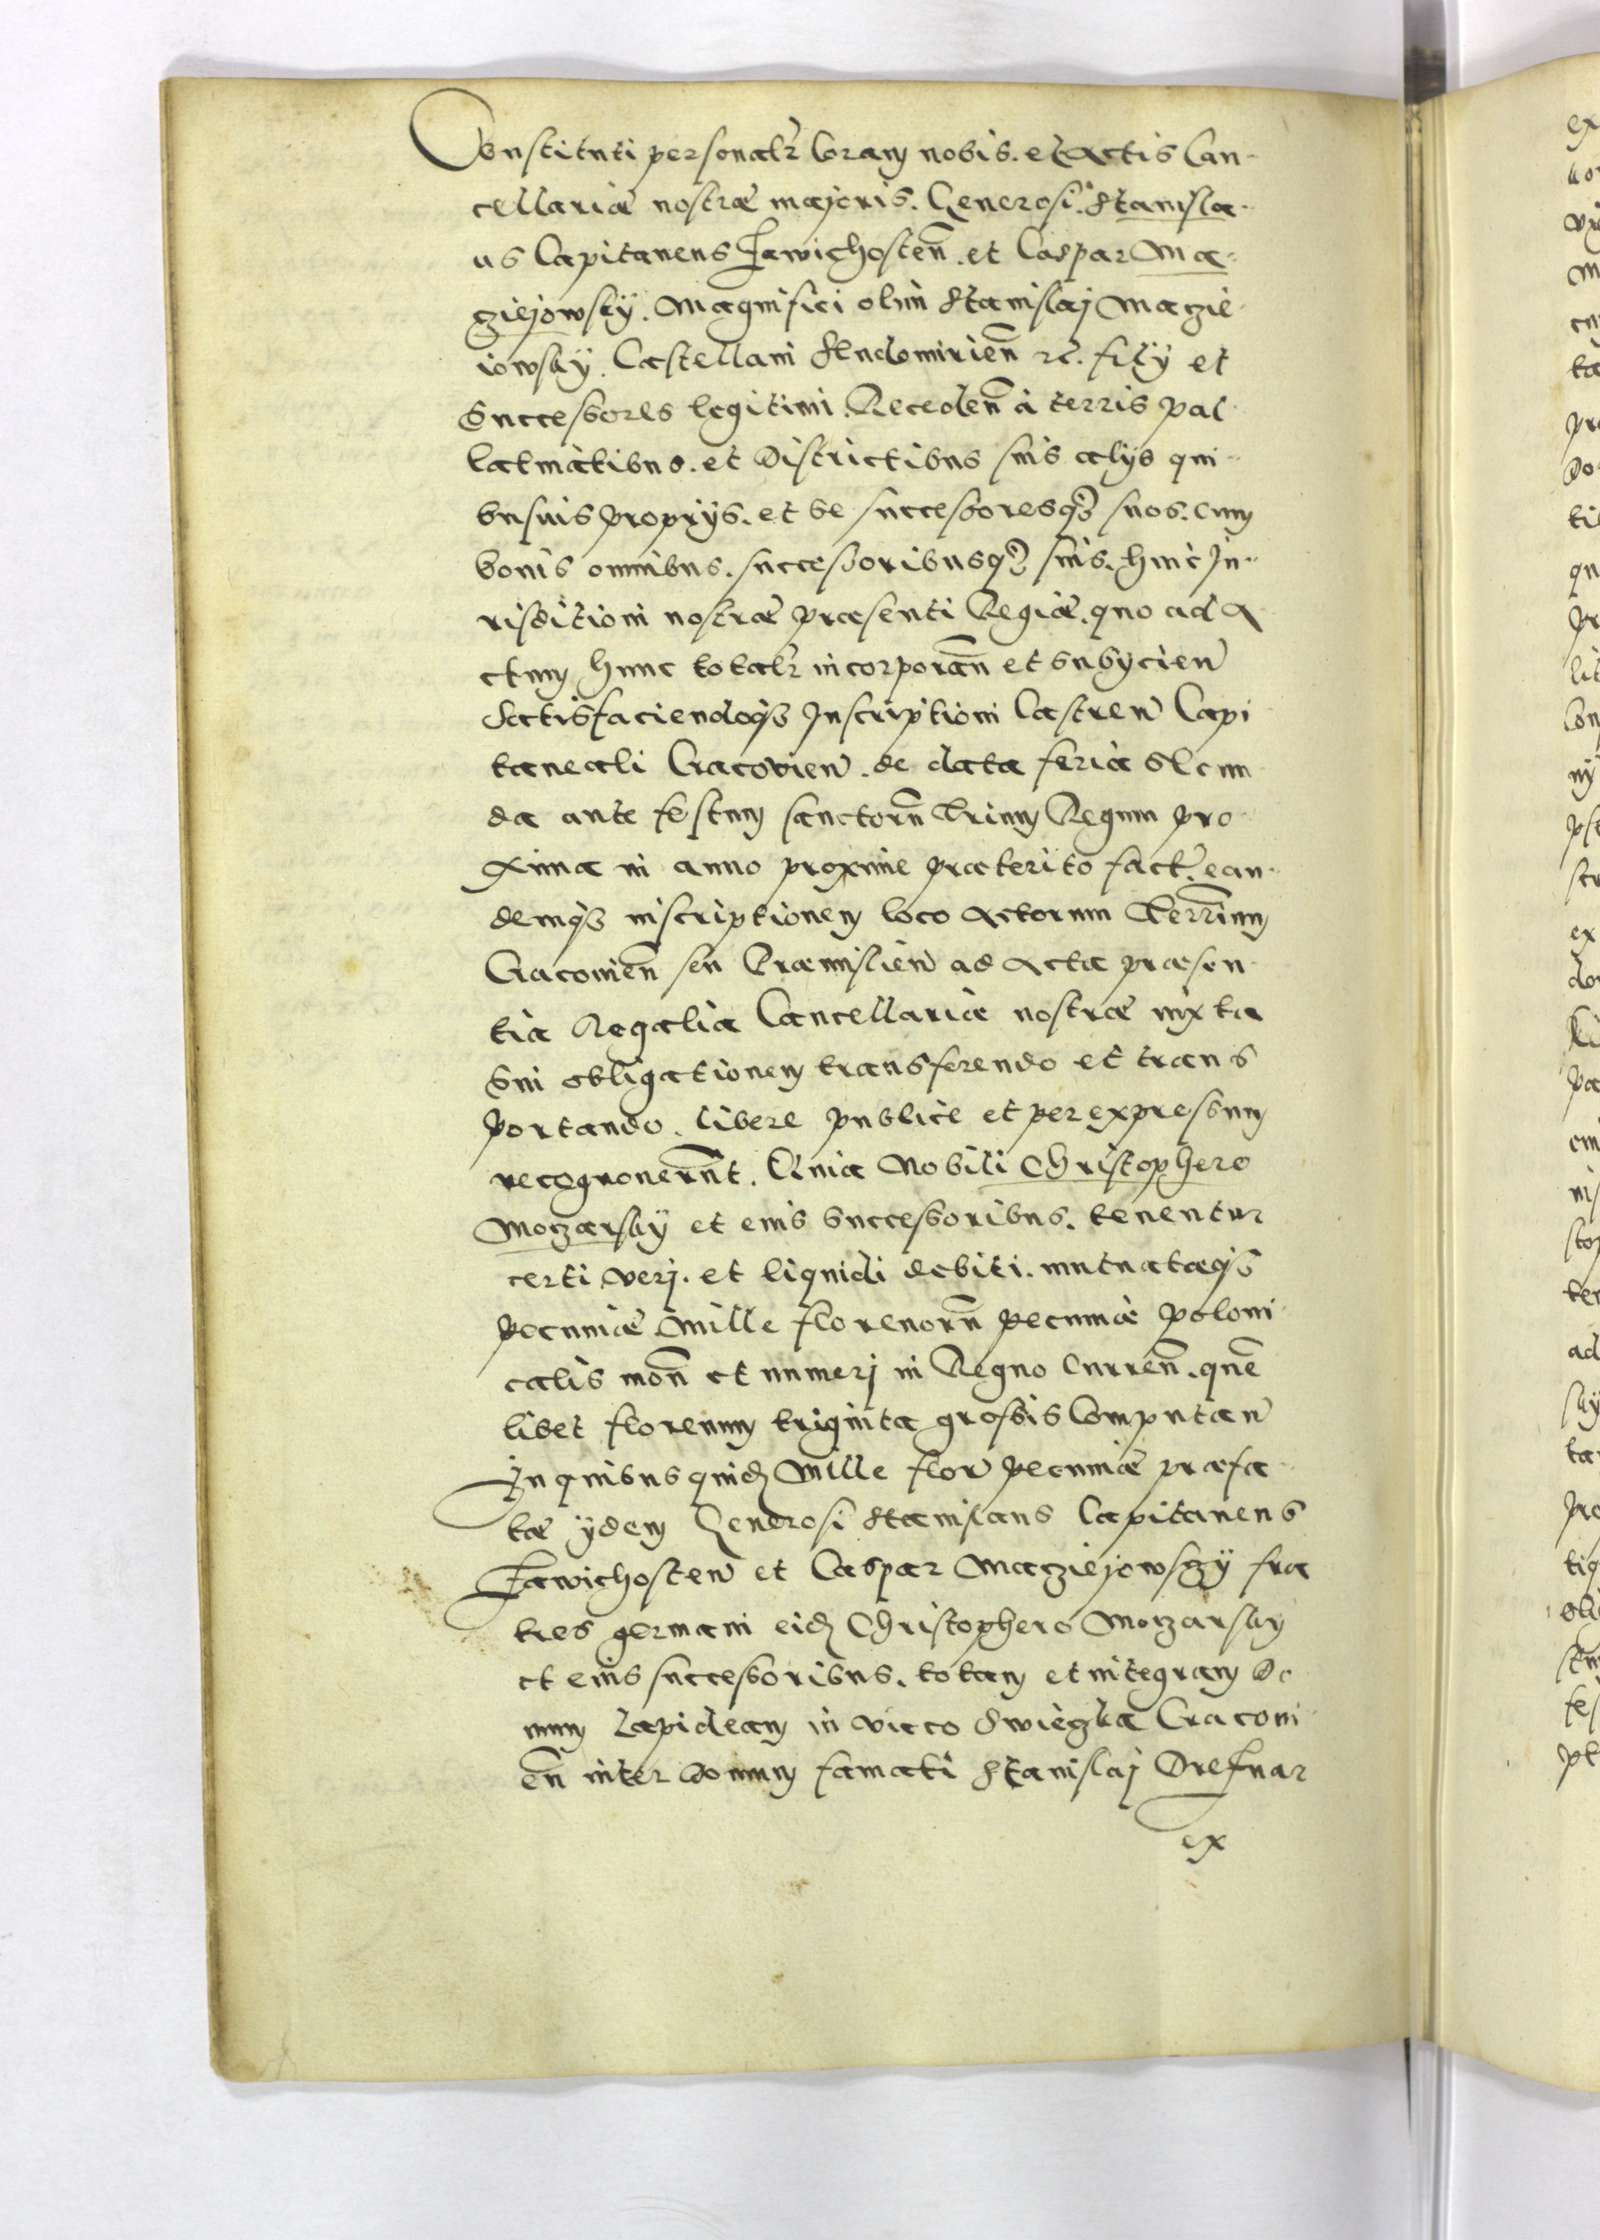 Constituti personalr̃ Coram nobis. et Actis Can-
cellariæ nostræ majoris. Generosi. Stanisla-
us Capitaneus Zawichosten̄. et Caspar Ma-
cziejowsky. Magnifici olim Stanislaj Maczie-
iowsky. Castellani Sendomirien̄ etc. filij et
Successores legitimi. Receden̄ à terris pal
latinatibus. et Districtibus suis alijs qui-
busuis proprijs. et se successoresqȝ suos. cum
bonis omnibus. successoribusqȝ suis. huic Ju-
risditioni nostræ præsenti Regiæ. quo ad A
ctum hunc totalr̃ incorporan̄ et subijcien̄
Satisfaciendoqȝ Inscriptioni Castren̄ Capi
taneali Cracovien̄. de data feria secun
da ante festum sanctorū Trium Regum pro
xima in anno proxime præterito fact̃. ean-
demqȝ inscriptionem loco Actorum Terr̄īum
Cracouien̄ seu Præmislien̄ ad Acta præsen-
tia Regalia Cancellariæ nostræ iuxta
sui obligationem transferendo et trans
portando. libere publice et per expressum
recognouerūt. Quia Nobili Christophero
Moczarsky et eius successoribus. tenentur
certi verj. et liquidi debiti. mutuatæqȝ
pecuniæ Mille florenorū pecuniæ poloni
calis mon̄ et numerj in Regno Curren̄. quē
libet florenum triginta grossis Computan̄
In quibus quid̃ Mille flor̄ pecuniæ præfa-
tæ ijdem Generosi Stanislaus Capitaneus
Zawichosten̄ et Caspar Macziejowsky fra
tres germani eid̃ Christophero Moczarsky
et eius successoribus. totam et integram Do
mum Lapideam in vico Swieczka Cracoui
en̄ inter domum famati Stanislaj Drefnar
ex